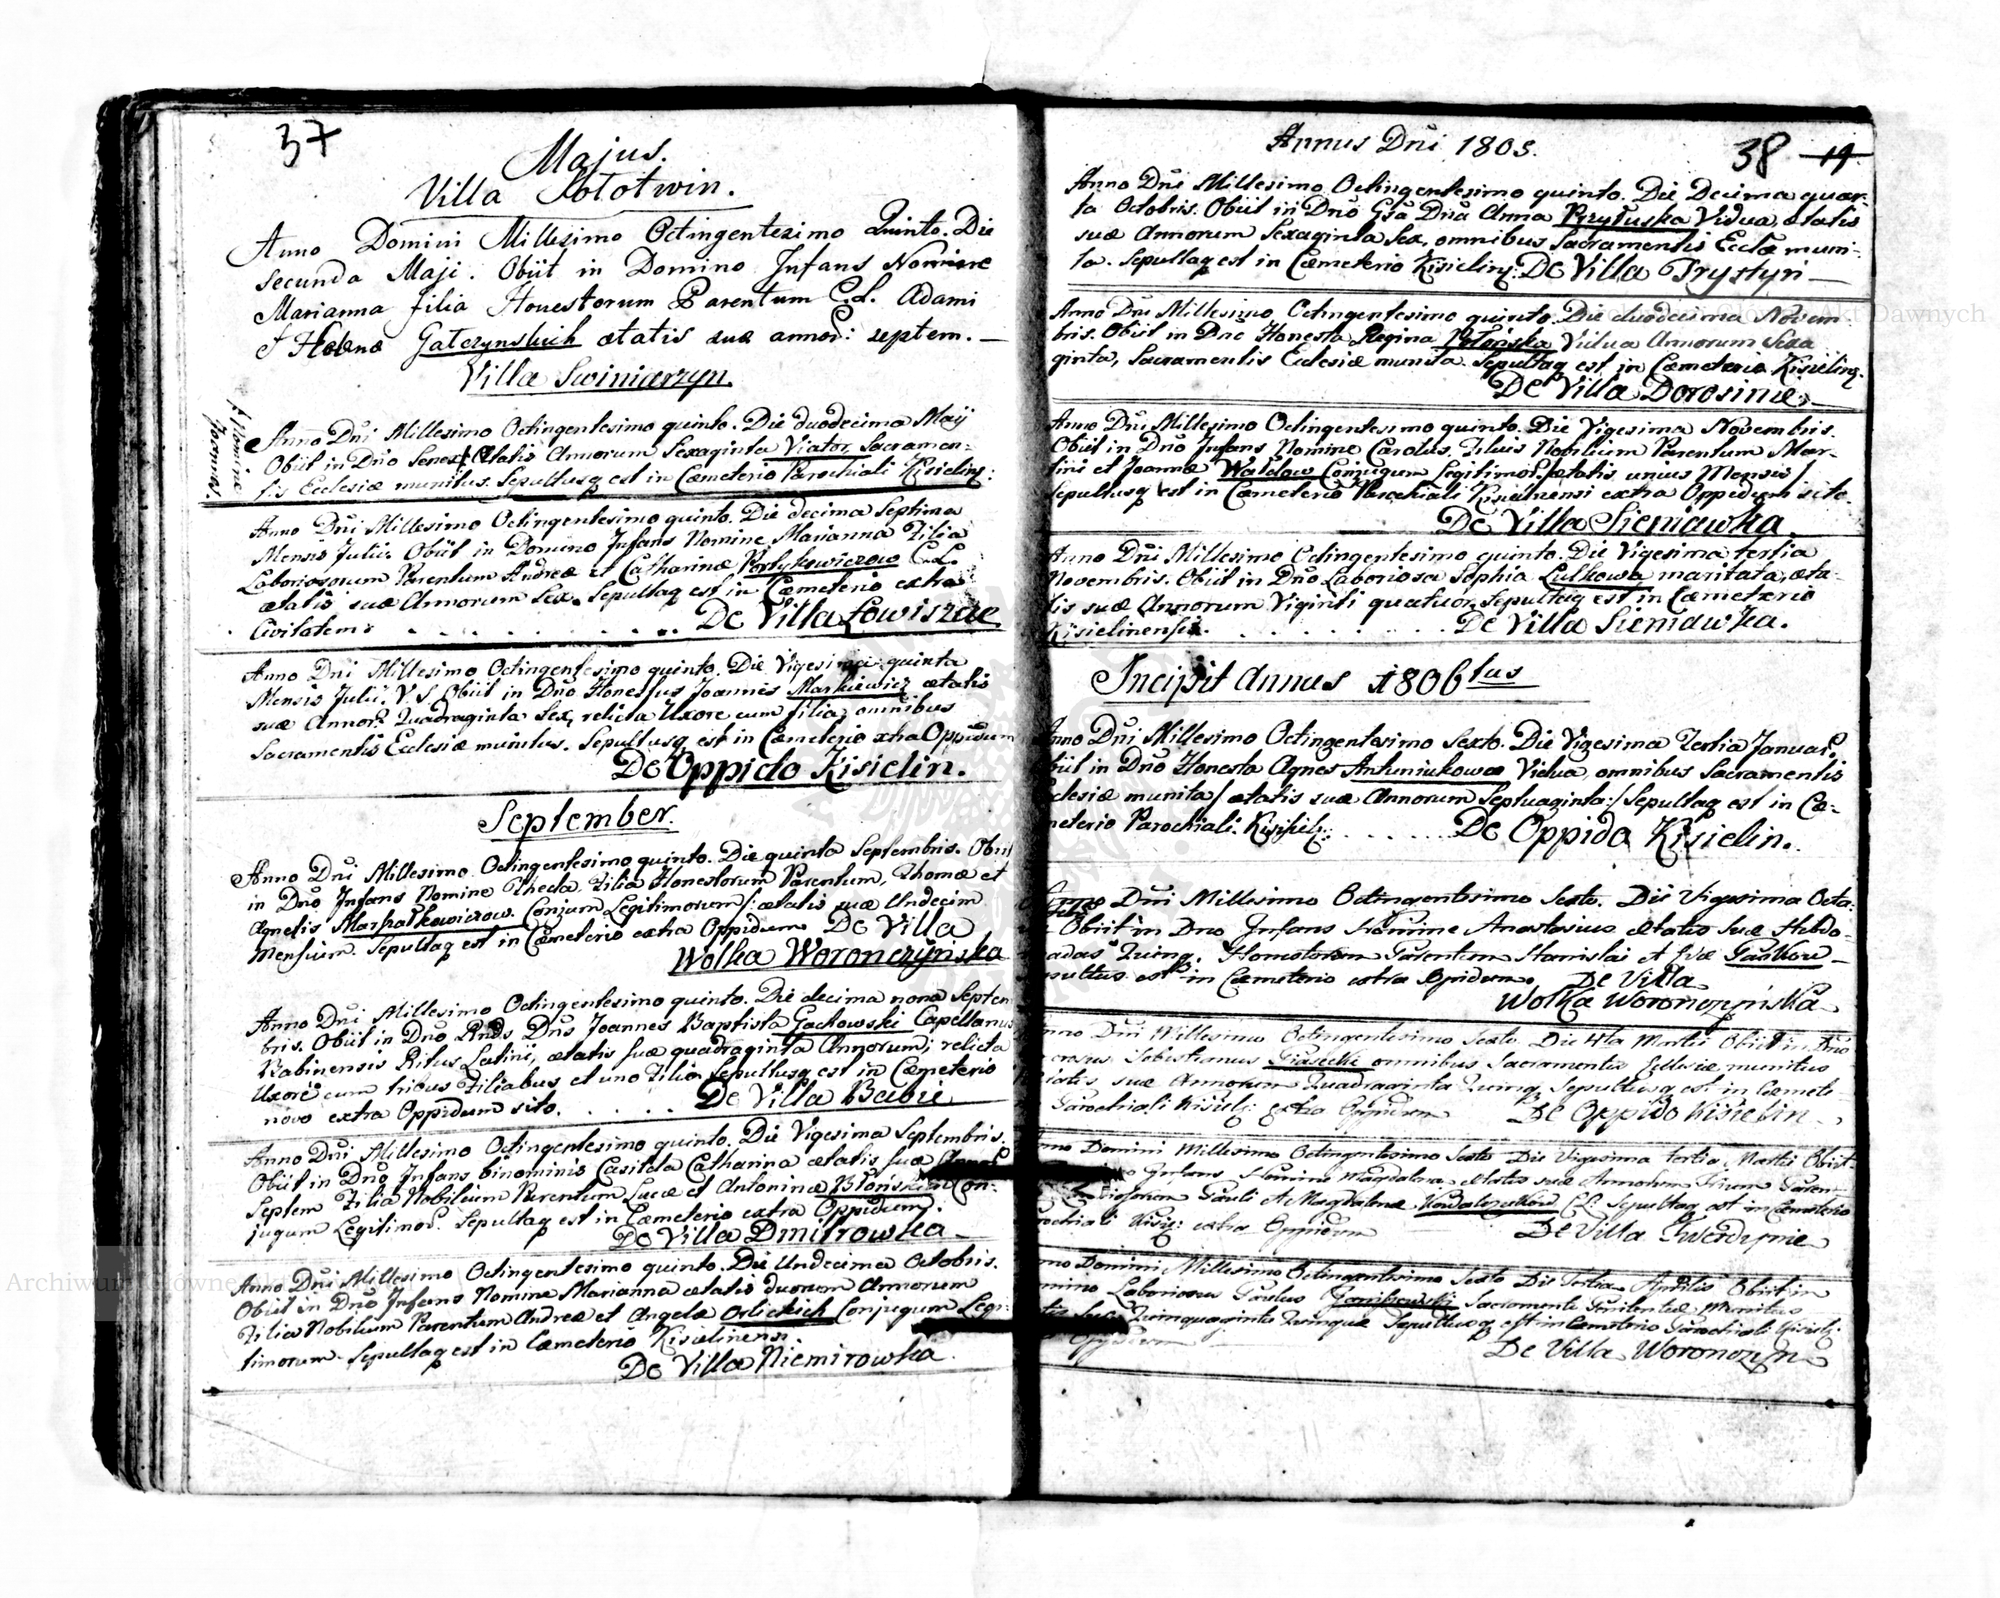 37
Majus.
Villa Sototwin.
Anno Domini Millesimo Octingentesimo Quinto. Die
secunda Maji. Obiit in Domino Infans Nomine
Marianna filia Honestorum Parentum C.L. Adami
et Helenæ Gatczynskich ætatis suæ annor: septem. —
Villa Swiniarzyn.
Nomine
Joannes.
Anno Dñi Millesimo Octingentesimo quinto. Die duodecima Maij
Obiit in Dño Senex ætatis Annorum Sexaginta Viator, Sacramen-
tis Ecclesiæ munitus. Sepultusq est in Cæmeterio Parochiali Kisieling:
Anno Dñi Millesimo Octingentesimo quinto. Die decima Septima
Mensis Julii. Obiit in Domino Infans Nomine Marianna Filia
Laboriosorum Parentum Andreæ et Catharinæ Portykowiczow C.L.
ætatis suæ Annorum Sex. Sepultaq est in Cæmeterio extra
Civitatem. . . . . . . . . . De Villa Łowiszcze
Anno Dñi Millesimo Octingentesimo quinto. Die Vigesima quinta
Mensis Julii. V.S. Obiit in Dño Honestus Joannes Markiewicz ætatis
suæ Annor: Quadraginta Sex, relicta Uxore cum filia, omnibus
Sacramentis Ecclesiæ munitus. Sepultusq est in Cæmeterio extra Oppidum
De Oppido Kisielin.
September.
Anno Dñi Millesimo Octingentesimo quinto. Die quinta Septembris. Obiit
in Dño Infans Nomine Thecla Filia Honestorum Parentum, Thomæ et
Agnetis Marszałkowiczow. Conjum Legitimorum/: ætatis suæ Undecim
Mensium. Sepultaq est in Cæmeterio extra Oppidum De Villa
Wolka Woronczyńska
Anno Dñi Millesimo Octingentesimo quinto. Die decima nona Septem
bris. Obiit in Dño Rnds Dñus Joannes Baptista Gackowski Capellanus
Babinensis Ritus Latini, ætatis suæ quadraginta Annorum; relicta
Uxore cum tribus Filiabus et uno Filio. Sepultusq est in Cæmeterio
novo extra Oppidum sito. . . . . . De Villa Babie
Anno Dñi Millesimo Octingentesimo quinto. Die Vigesima Septembris.
Obiit in Dño Infans binominis Casilda Catharina ætatis suæ Annor
Septem Filia Nobilium Parentum Lucæ et Antoninæ Błońskich Con-
jugum Legitimor. Sepultaq est in Cæmeterio extra Oppidum.
De Villa Dmitrowka
Anno Dñi Millesimo Octingentesimo quinto. Die Undecima Octobris.
Obiit in Dño Infans Nomine Marianna ætatis duorum Annorum
Filia Nobilium Parentum Andreæ et Angelæ Orlickich Conjugum Legi-
timorum. Sepultaq est in Cæmeterio Kisielinensi.
De Villa Niemirowka.
Annus Dñi 1805.
38 19
Anno Dñi Millesimo Octingentesimo quinto. Die Decima quar-
ta Octobris. Obiit in Dño Gsa Dña Anna Przyłuska Vidua, ætatis
suæ Annorum Sexaginta Sex, omnibus Sacramentis Eccłæ muni-
ta. Sepultaq est in Cæmeterio Kisieling: De Villa Trystyn —
Anno Dñi Millesimo Octingentesimo quinto. Die duodecima Novem
bris. Obiit in Dño Honesta Regina Vidua Annorum Sexa
ginta, Sacramentis Ecclesiæ munita. Sepultaq est in Cæmeterio Kisieling.
De Villa Dorosinie.
Anno Dñi Millesimo Octingentesimo quinto. Die Vigesima Novembris.
Obiit in Dño Infans Nomine Carolus. Filius Nobilium Parentum Mar-
tini et Joannæ Waldow Conjugum Legitimor./ætatis unius Mensis/
Sepultusq est in Cæmeterio Parochiali Kisielinensi extra Oppidum sito.
De Villa Sieniawka
Anno Dñi Millesimo Octingentesimo quinto. Die Vigesima tertia
Novembris. Obiit in Dño Laboriosa Sophia Lulkowa maritata, æta-
tis suæ Annorum Viginti quatuor, Sepultaq est in Cæmeterio
Kisielinensi. . . . . . . . De Villa Sieniawka.
Incipit Annus 1806tus
Anno Dñi Millesimo Octingentesimo Sexto. Die Vigesima Tertia Januar,
Obiit in Dño Honesta Agnes Antoniukowa Vidua, omnibus Sacramentis
clesiæ munita/ætatis suæ Annorum Septuaginta:/Sepultaq est in Cæ-
meterio Parochiali. . . . . . De Oppido Kisielin.
Anno Dñi Millesimo Octingentesimo Sexto. Die Vigesima Octa:
Obiit in Dno Infans Nomine Anastasius ætatis Suæ Hebdo-
madas Quinq. Honestorum Parentum Stanislai et Evæ
Sepultus est in Cæmeterio extra Opidum. De Villa
Wolka Woronczyńska
Anno Dñi Millesimo Octingentesimo Sexto. Die 4ta Martii Obiit in Dño
Sebestianus omnibus Sacramentis Ecclesiæ munitus
ætatis suæ Annorum Quadraginta Quinq. Sepultusq est in Cæmete-
Parochiali Kisiel: extra Oppidum De Oppido Kisielin.
Anno Domini Millesimo Octingentesimo Sexto Die Vigesima tertia Martii Obiit
Infans Nomine Magdalena ætatis suæ Annorum Trium Paren-
Pauli et Magdalenæ C.L. Sepultaq est in Cæmeterio
rochiali Kisiel: extra Oppidum De Villa Twerdynie
Anno Domini Millesimo Octingentesimo Sexto Die Tertia Aprilis Obiit in
Domino Laboriosus Paulus Sacramento Penitentiæ Munitus
Quinquaginta Quinque Sepultusq est in Cæmeterio Parochiali Kisiel:
Oppidum De Villa Woronczyn
Archiwum Główne Akt Dawnych